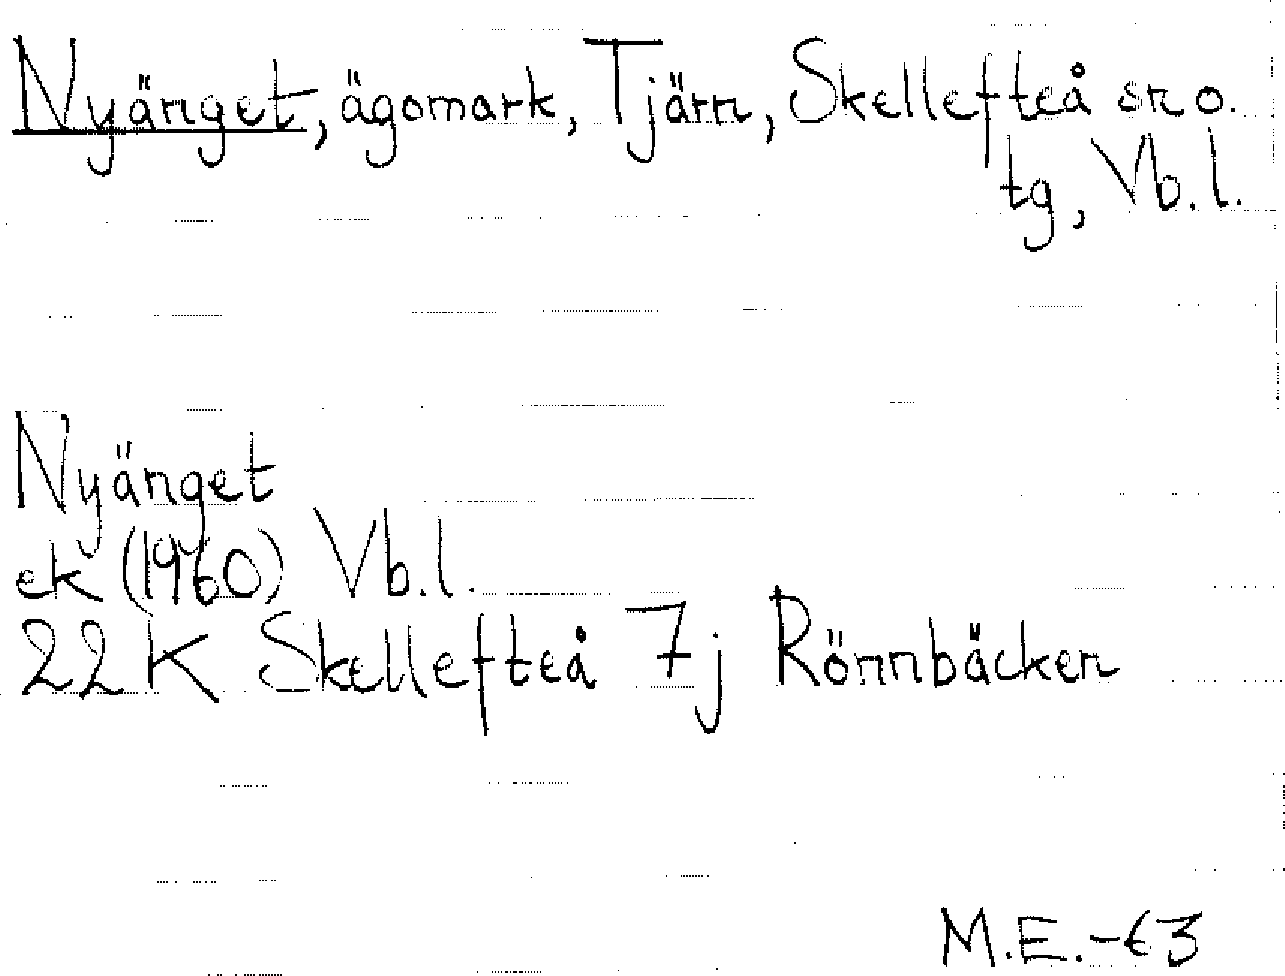 Nyänget, ägomark, Tjärn, Skellefteå sn o.
tg, Vb. l.
Nyänget
ek (1960) Vb. l.
22 K Skellefteå 7j Rönnbäcken
M.E.-63